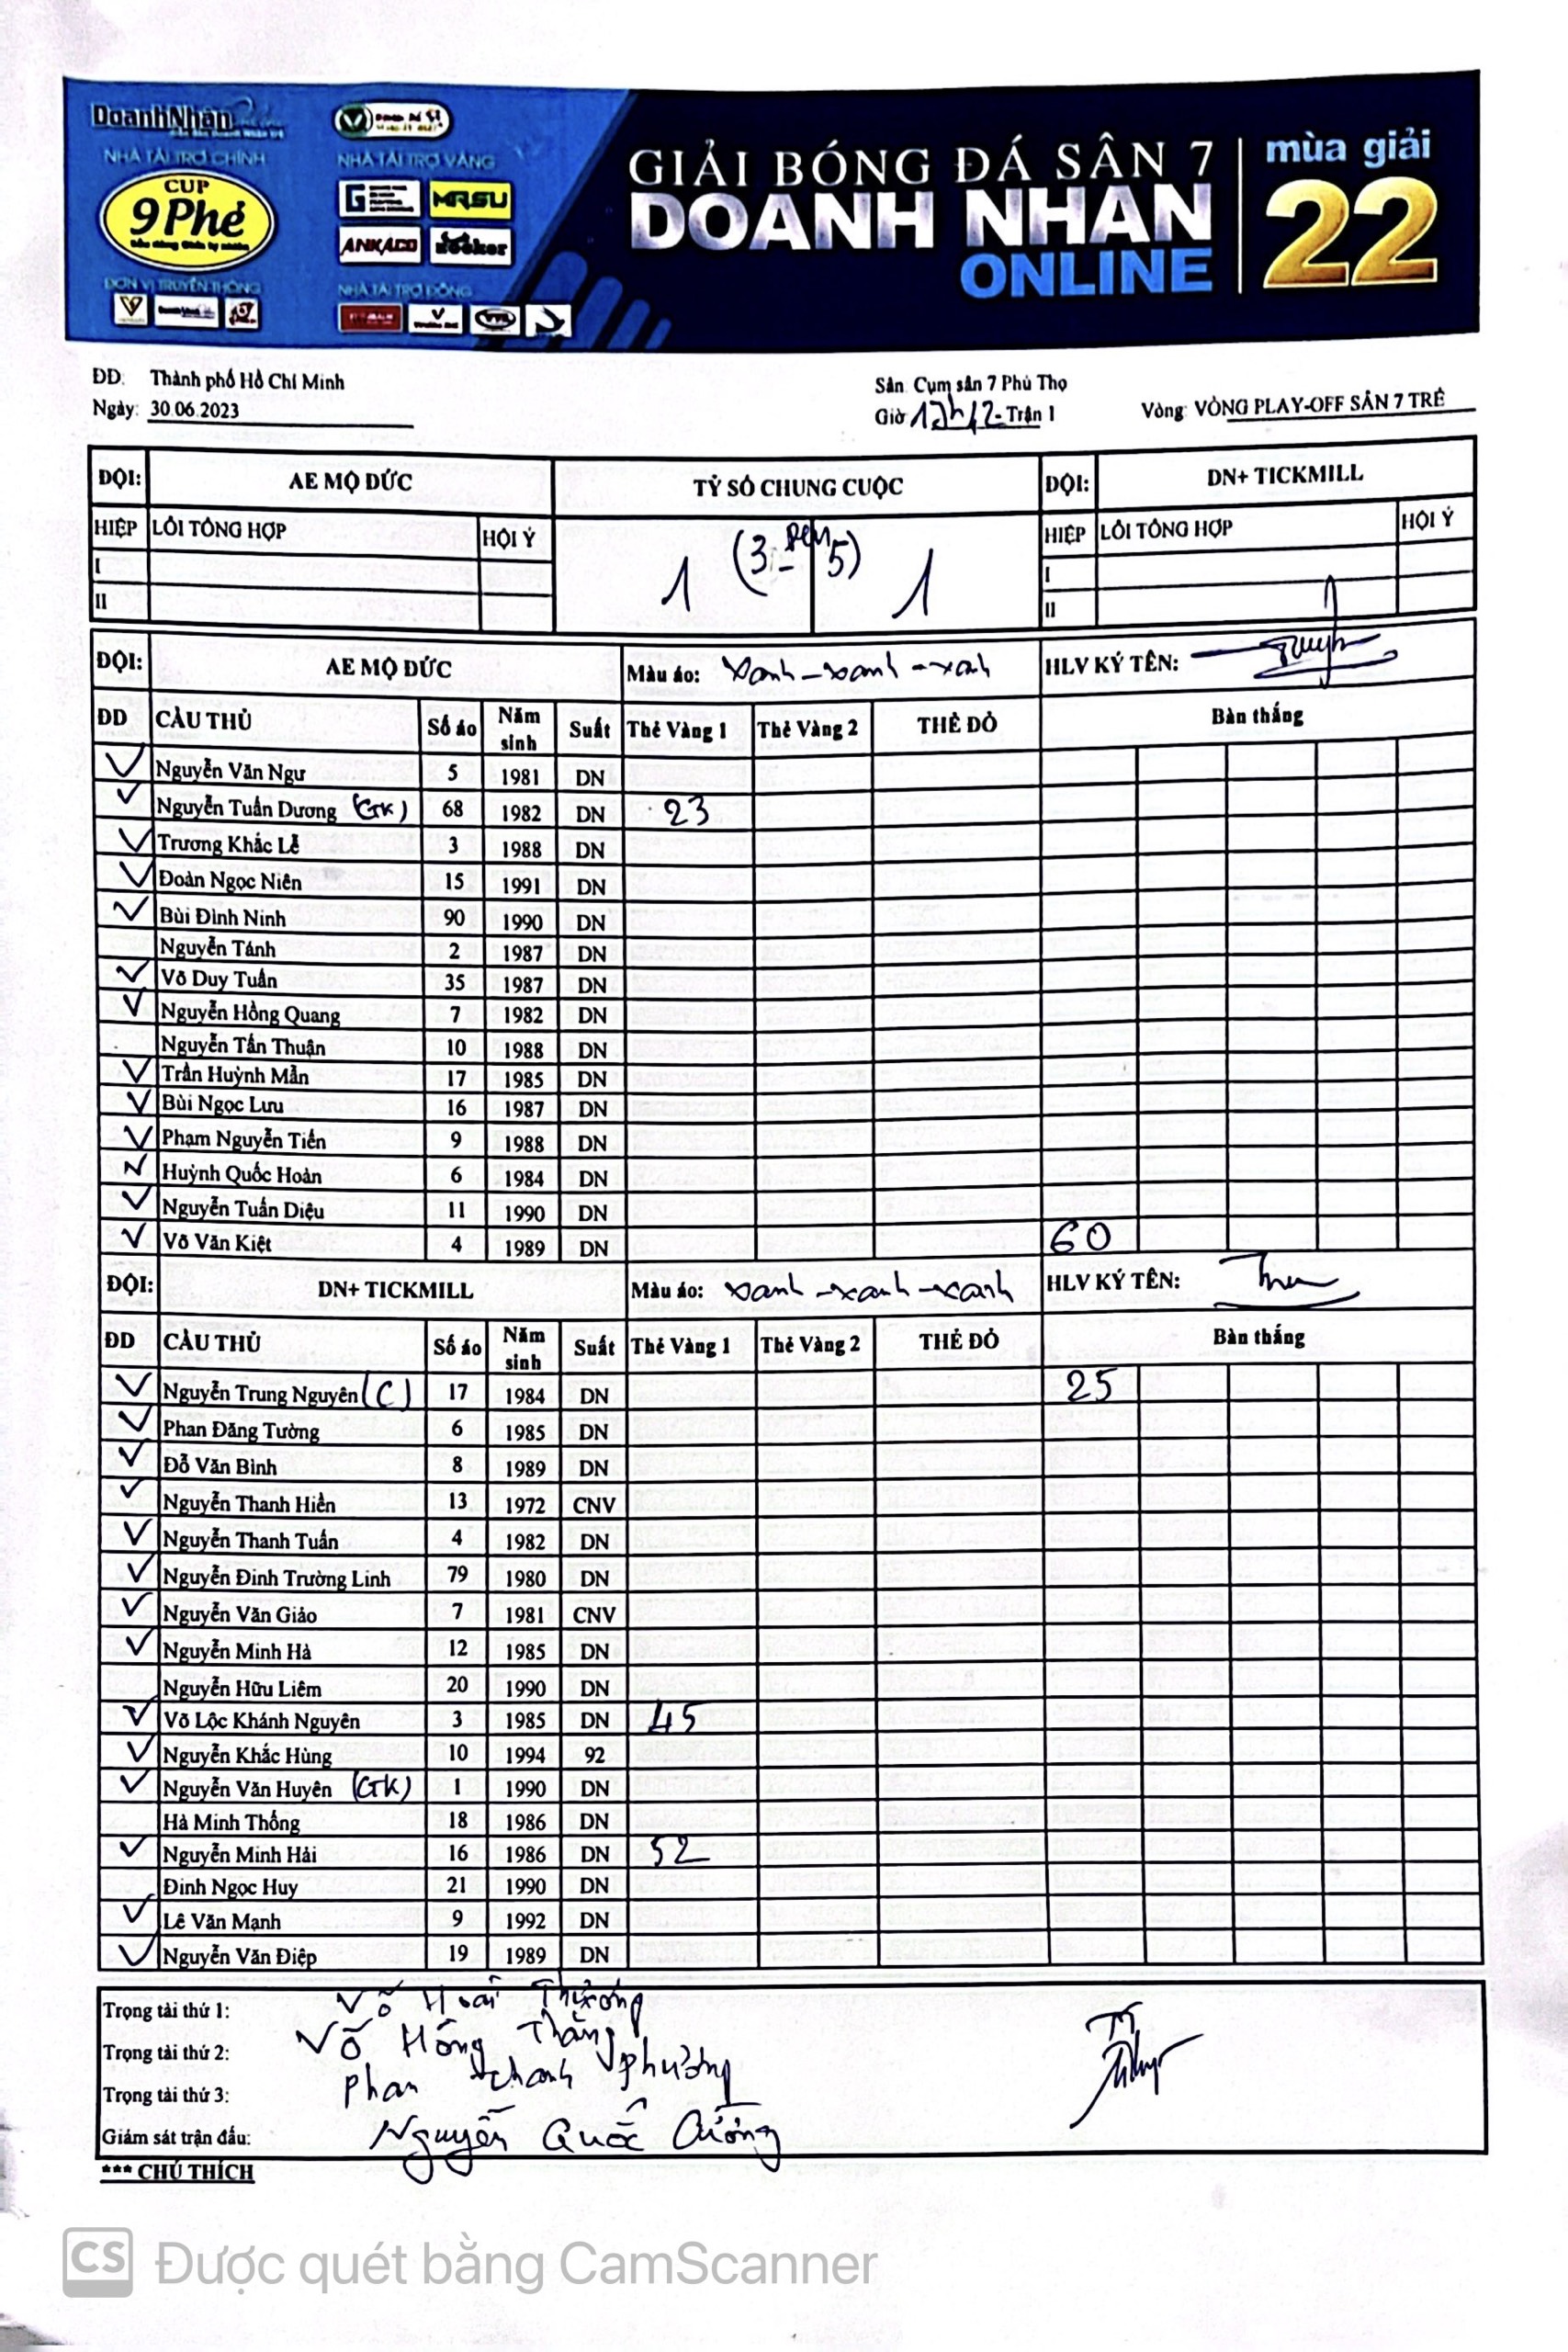 DoanhNhân
NHÀ TÀI TRỢ CHÍNH
NHÀ TÀI TRỢ VÀNG
CUP
9 Phẻ
G
MRSU
ANKACO
ĐƠN VỊ TRUYỀN THÔNG
NHÀ TÀI TRỢ ĐỒNG
GIẢI BÓNG ĐÁ SÂN 7
DOANH NHÂN
ONLINE
mùa giải
22
ĐD: Thành phố Hồ Chí Minh
Sân: Cụm sân 7 Phú Thọ
Ngày: 30.06.2023
Giờ 17h12 - Trận 1
Vòng: VÒNG PLAY-OFF SÂN 7 TRẺ
ĐỘI: AE MỘ ĐỨC TỶ SỐ CHUNG CUỘC ĐỘI: DN+ TICKMILL
HIỆP LỖI TỔNG HỢP HỘI Ý 1 (3 - pen 5) 1 HIỆP LỖI TỔNG HỢP HỘI Ý
I I
II II
ĐỘI: AE MỘ ĐỨC Màu áo: xanh - xanh - xah HLV KÝ TÊN:
ĐD CẦU THỦ Số áo Năm sinh Suất Thẻ Vàng 1 Thẻ Vàng 2 THẺ ĐỎ Bàn thắng
✓ Nguyễn Văn Ngư 5 1981 DN
✓ Nguyễn Tuấn Dương (GK) 68 1982 DN 23
✓ Trương Khắc Lễ 3 1988 DN
✓ Đoàn Ngọc Niên 15 1991 DN
✓ Bùi Đình Ninh 90 1990 DN
Nguyễn Tánh 2 1987 DN
✓ Võ Duy Tuấn 35 1987 DN
✓ Nguyễn Hồng Quang 7 1982 DN
Nguyễn Tấn Thuận 10 1988 DN
✓ Trần Huỳnh Mẫn 17 1985 DN
✓ Bùi Ngọc Lưu 16 1987 DN
✓ Phạm Nguyễn Tiến 9 1988 DN
✓ Huỳnh Quốc Hoàn 6 1984 DN
✓ Nguyễn Tuấn Diệu 11 1990 DN
✓ Võ Văn Kiệt 4 1989 DN 60
ĐỘI: DN+ TICKMILL Màu áo: xanh - xanh - xanh HLV KÝ TÊN:
ĐD CẦU THỦ Số áo Năm sinh Suất Thẻ Vàng 1 Thẻ Vàng 2 THẺ ĐỎ Bàn thắng
✓ Nguyễn Trung Nguyên (C) 17 1984 DN 25
✓ Phan Đăng Tường 6 1985 DN
✓ Đỗ Văn Bình 8 1989 DN
✓ Nguyễn Thanh Hiền 13 1972 CNV
✓ Nguyễn Thanh Tuấn 4 1982 DN
✓ Nguyễn Đinh Trường Linh 79 1980 DN
✓ Nguyễn Văn Giảo 7 1981 CNV
✓ Nguyễn Minh Hà 12 1985 DN
Nguyễn Hữu Liêm 20 1990 DN
✓ Võ Lộc Khánh Nguyên 3 1985 DN 45
✓ Nguyễn Khắc Hùng 10 1994 92
✓ Nguyễn Văn Huyên (GK) 1 1990 DN
Hà Minh Thống 18 1986 DN
✓ Nguyễn Minh Hải 16 1986 DN 52
Đinh Ngọc Huy 21 1990 DN
✓ Lê Văn Mạnh 9 1992 DN
✓ Nguyễn Văn Điệp 19 1989 DN
Trọng tài thứ 1: Võ Hoài Thương
Trọng tài thứ 2: Võ Hồng Thắng
Trọng tài thứ 3: phan thanh phương
Giám sát trận đấu: Nguyễn Quốc Cường
*** CHÚ THÍCH
CS Được quét bằng CamScanner